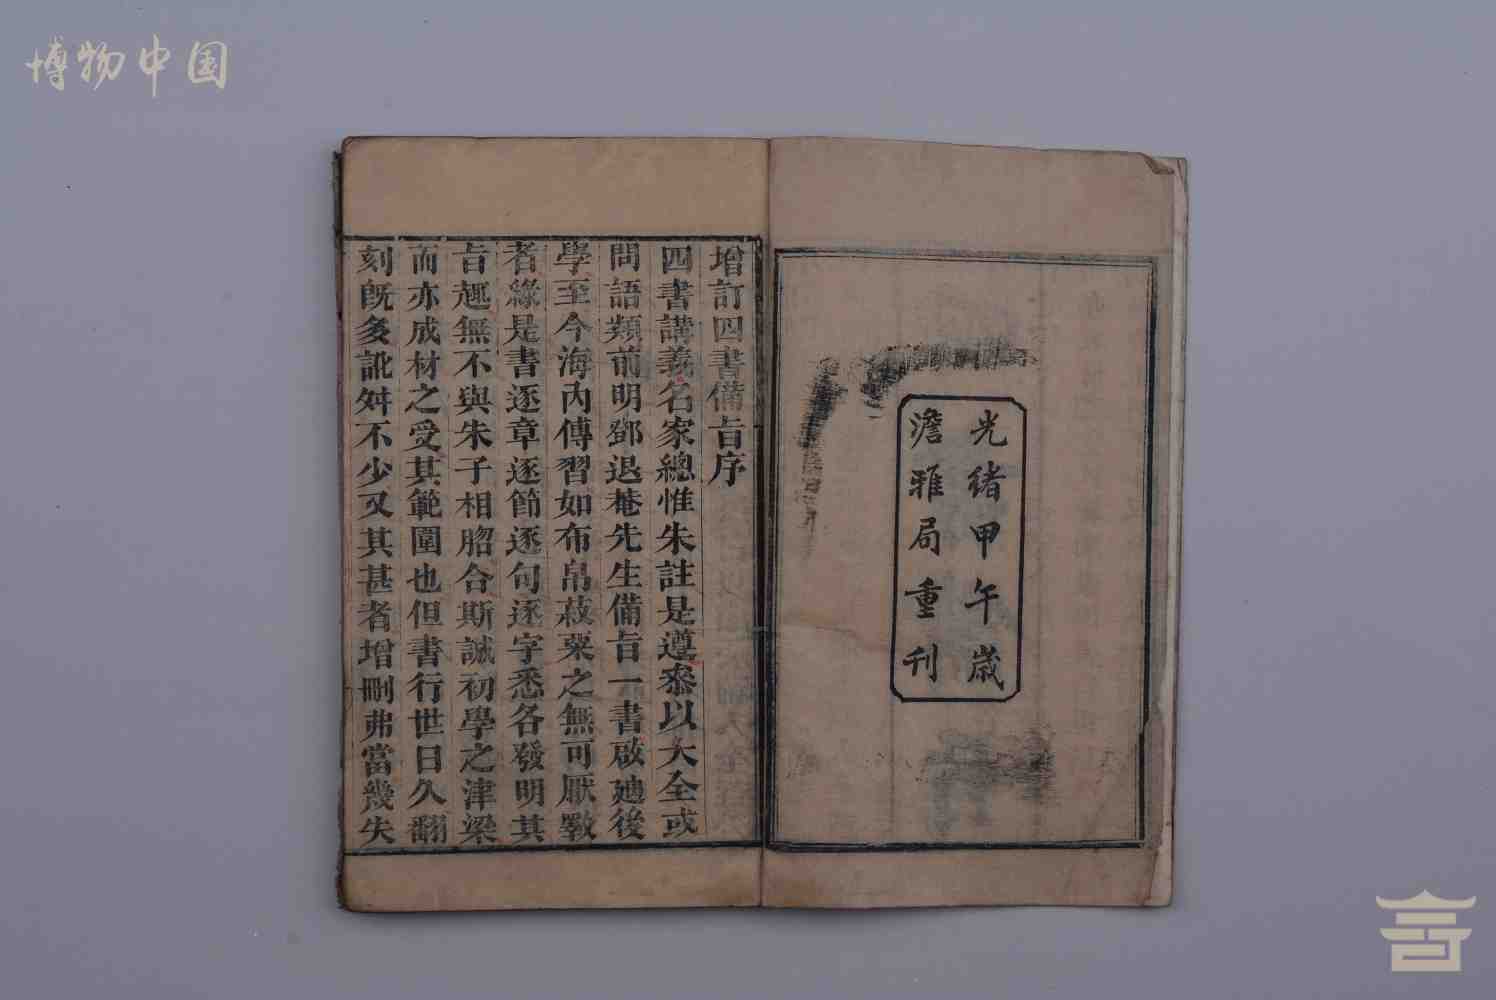 博物中国
光緒甲午歲
澹雅局重刊
增訂四書備旨序
四書講義名家總惟朱註是遵叅以大全或
問語類前明鄧退菴先生備旨一書啟廸後
學至今海內傳習如布帛菽粟之無可厭斁
者緣是書逐章逐節逐句逐字悉各發明其
旨趣無不與朱子相脗合斯誠初學之津梁
而亦成材之受其範圍也但書行世日久翻
刻旣多訛舛不少又其甚者增刪弗當幾失